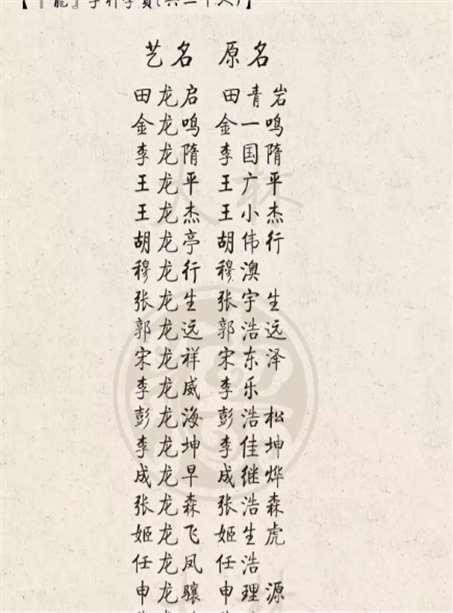 【『龍』字科学員(共二十人)】
艺名 原名
田龙启 田青岩
金龙鸣 金一鸣
李龙隋 李国隋
王龙平 王广平
王龙杰 王小杰
胡龙亭 胡伟行
穆龙行 穆澳
张龙生 张宇生
郭龙远 郭浩远
宋龙祥 宋东泽
李龙威 李乐
彭龙海 彭浩松
李龙坤 李佳坤
成龙早 成继烨
张龙森 张浩森
姬龙飞 姬生虎
任龙凤 任浩
申龙骧 申理源